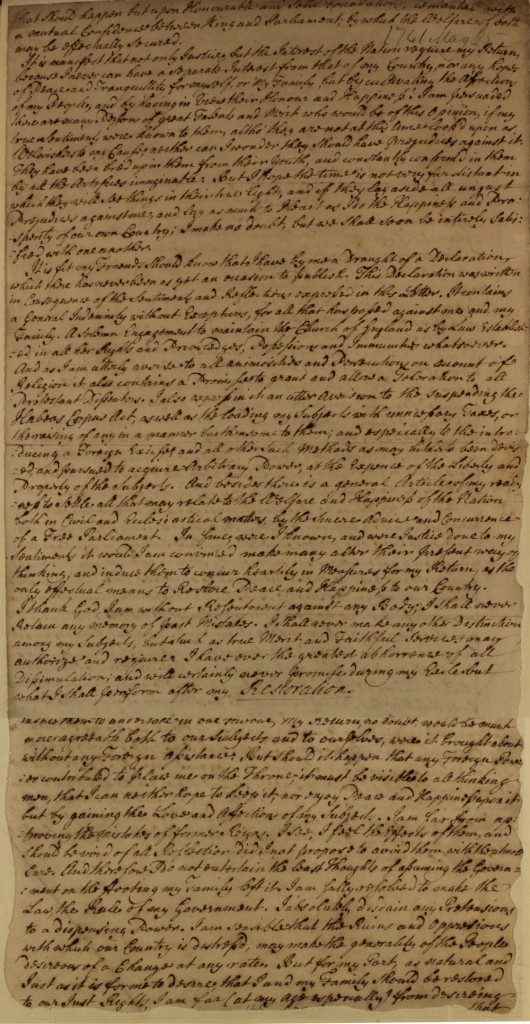 that should happen but upon Honourable and Solid Foundations, cemented with
a mutual Confidence between King and Parliament, by which the Welfare of both
may be effectually Secured.
1741 May
It is manifest that not only Justice but the Interest of the Nation require my Return,
because I never can have a separate Interest from that of my Country, nor any hopes
of Peace and Tranquillity for myself, or my Family, but by cultivating the Affections
of my People, and by having in View their Honour and Happiness! I am persuaded
there are many Persons of great Talents and Merit who would be of this Opinion, if my
true Sentiments were known to them, altho' they are not at this time look'd upon as
Wellwishers to my Cause; neither can I wonder they should have Prejudices against it.
They have been bred up in them from their Youth, and constantly confirm'd in them
by all the Artifices imaginable: But I hope the time is not very far distant in
which they will see things in their true Light, and if they lay aside all unjust
Prejudices against me, and lay as much to Heart as I do the Happiness and Pros-
perity of our own Country; I make no doubt, but we shall soon be entirely Satis-
fied with one another.
It is fit my Friends should know that I have by me a Draught of a Declaration,
which there has never been as yet an occasion to publish. This Declaration was written
in Consequence of the Sentiments and Reflections expressed in this Letter. It contains
a General Indemnity without Exceptions, for all that has passed against me and my
Family. A Solemn Engagement to maintain the Church of England as by Law Establish-
ed in all her Rights and Priviledges, Possessions and Immunities whatsoever.
And as I am utterly averse to all animosities and Persecutions on account of
Religion it also contains a Promise to grant and allow a Toleration to all
Protestant Dissenters. I also express in it an utter Aversion to the Suspending the
Habeas Corpus Act, as well as the loading my Subjects with unnecessary Taxes, or
the raising of any in a manner burthensome to them; and especially to the intro-
ducing a Foreign Excises and all other such Methods as may hitherto been devis-
ed and pursued to acquire Arbitrary Power, at the Expence of the Liberty and
Property of the Subjects. And besides there is a general Article of my readi-
ness to settle all that may relate to the Welfare and Happiness of the Nation
both in Civil and Eclesiastical matters, by the Sincere advice and Concurrence
of a Free Parliament. In fine, were I known, and were Justice done to my
Sentiments it would I am convinced make many alter their present way of
thinking, and induce them to concur heartily in Measures for my Return, as the
only effectual means to Restore Peace and Happiness to our Country.
I thank God I am without Resentment against any Body; I shall never
Retain any memory of past Mistakes. I shall never make any other Distinction
among my Subjects, but such as true Merit and Faithful Services may
authorize and require: I have ever the greatest abhorrence of all
Disimulation; and will certainly never promise during my Exile but
what I shall perform after my Restoration.
in one
my Return, no doubt, would be much
more agreeable both to our Subjects and to ourselves, were it brought about
without any Foreign Assistance: But should it happen that any Foreign Pow-
er contributed to place me on the Throne, it must be visible to all thinking
men, that I can neither hope to keep it, nor enjoy Peace and Happiness upon it,
but by gaining the Love and Affection of my Subjects. I am far from ap-
proving the mistakes of former Reigns. I see, I feel the Effects of them, and
should be void of all Reflection did I not propose to avoid them, with the utmost
Care. And therefore I do not entertain the least Thoughts of assuming the Govern-
ment on the footing my Family left it. I am fully resolved to make the
Law, the Rule of my Government. I absolutely disclaim any Pretensions
to a dispensing Power. I am sensible that the Ruins and Oppressions
with which our Country is distress'd, may make the generality of the People
desireous of a Change at any rate. But for my Part, as natural and
Just as it is for me to desire, that I and my Family should be restored
to our Just Rights, I am far (at my Age especially) from desireing
that